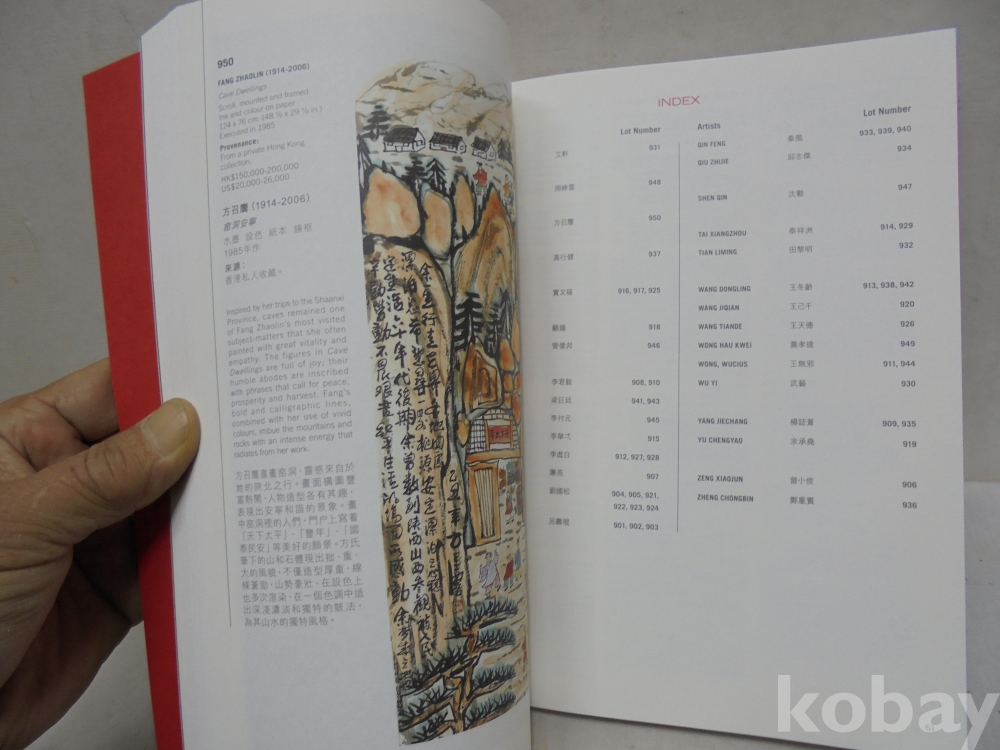 950
FANG ZHAOLIN (1914-2006)
Cave Dwellings
Scroll, mounted and framed
Ink and colour on paper
124 x 76 cm. (48 ⅞ x 29 ⅞ in.)
Executed in 1985
Provenance:
From a private Hong Kong
collection.
HK$150,000-200,000
US$20,000-26,000
方召麐 (1914-2006)
窰洞安寧
水墨 設色 紙本 鏡框
1985年作
來源:
香港私人收藏。
Inspired by her trips to the Shaanxi
Province, caves remained one
of Fang Zhaolin's most visited
subject-matters that she often
painted with great vitality and
empathy. The figures in Cave
Dwellings are full of joy; their
humble abodes are inscribed
with phrases that call for peace,
prosperity and harvest. Fang's
bold and calligraphic lines,
combined with her use of vivid
colours, imbue the mountains and
rocks with an intense energy that
radiates from her work.
方召麐喜畫窰洞,靈感來自於
她的陝北之行。畫面構圖豐
富熱鬧,人物造型各有其趣,
表現出安寧和諧的景象。畫
中窰洞裡的人們,門户上寫着
「天下太平」、「豐年」、「國
泰民安」等美好的願景。方氏
筆下的山和石體現出拙、重、
大的風貌,不僅造型厚重,線
條蒼勁,山勢豪壯,在設色上
也多次渲染,在一個色調中造
出深淺濃淡和獨特的皴法,
為其山水的獨特風格。
INDEX
Lot Number
文軒 931
周綠雲 948
方召麐 950
高行健 937
賈又福 916, 917, 925
顧雄 918
管偉邦 946
李君毅 908, 910
梁巨廷 941, 943
李付元 945
李華弌 915
李虛白 912, 927, 928
廉亮 907
劉國松 904, 905, 921,
922, 923, 924
呂壽琨 901, 902, 903
Artists Lot Number
QIN FENG 秦風 933, 939, 940
QIU ZHIJIE 邱志傑 934
SHEN QIN 沈勤 947
TAI XIANGZHOU 泰祥洲 914, 929
TIAN LIMING 田黎明 932
WANG DONGLING 王冬齡 913, 938, 942
WANG JIQIAN 王己千 920
WANG TIANDE 王天德 926
WONG HAU KWEI 黃孝逵 949
WONG, WUCIUS 王無邪 911, 944
WU YI 武藝 930
YANG JIECHANG 楊詰蒼 909, 935
YU CHENGYAO 余承堯 919
ZENG XIAOJUN 曾小俊 906
ZHENG CHONGBIN 鄭重賓 936
kobay